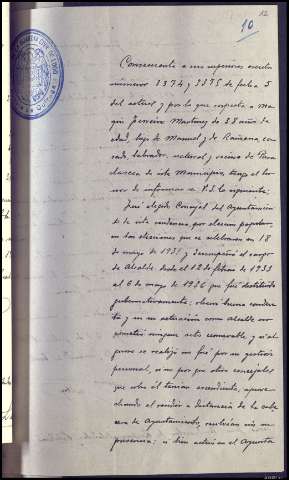 12
10
Consecuente a sus superiores escritos
número 3374 y 3375 de fecha 5
del actual y por lo que respecta a Ma
nuel Ferreiro Martinez de 38 años de
edad, hijo de Manuel y de Ramona, ca
sado, labrador, natural y vecino de
de este Municipio, tengo el ho
nor de informar a V.S. lo siguiente:
Fué elegido Concejal del Ayuntamien
to de esta residencia por eleccion popular,
en las elecciones que se celebraron en 18
de mayo de 1931 y desempeñó el cargo
de Alcalde desde el 12 de febrero de 1933
al 6 de mayo de 1936 que fué destituido
gubernativamente; observó buena conduc
ta y en su actuación como alcalde no
cometió ningun acto censurable, y si al
guno se realizó no fué por su gestión
personal, si no por que otros concejales
que sobre él tenian ascendiente, aprove
chando el residir a distancia de la cabe
cera de Ayuntamiento, resolvian sin su
presencia; si bien actuó en el Ayunta